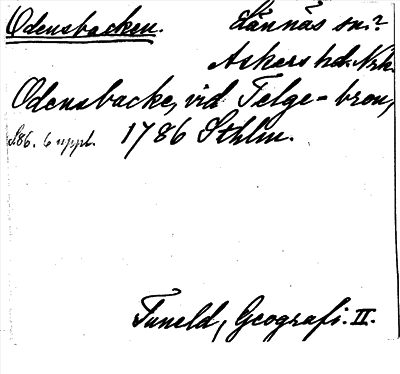 Odensbacken. Lännäs sn.?
Askers hd. Nrk.
Odensbacke, vid Telge-bron,
S86. 6 uppl. 1786 Sthlm.
Tuneld, Geografi. II.